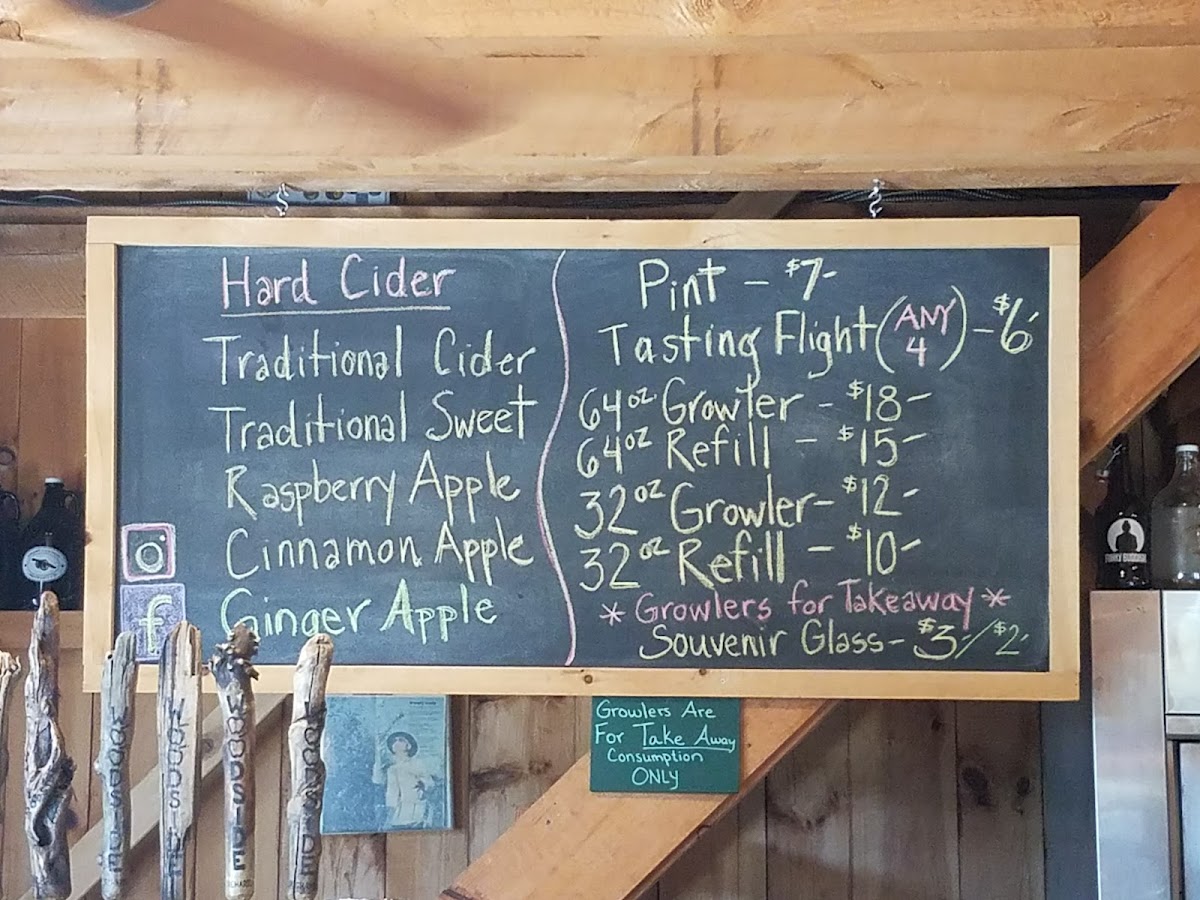 Hard Cider
Traditional Cider
Traditional Sweet
Raspberry Apple
Cinnamon Apple
Ginger Apple
f
Pint - $7-
Tasting Flight (ANY 4) - $6-
64oz Growler - $18-
64oz Refill - $15-
32oz Growler - $12-
32oz Refill - $10-
* Growlers for Takeaway *
Souvenir Glass - $3-/$2-
Growlers Are
For Take Away
Consumption
ONLY
WOODSIDE
WOODSIDE
WOODSIDE
WOODSIDE